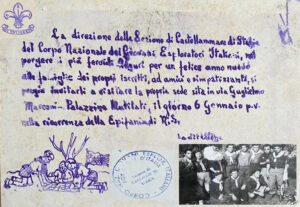 La direzione della Sezione di Castellammare di Stabia
del Corpo Nazionale dei Giovani Esploratori Italiani, nel
porgere i più fervidi auguri per un felice anno nuovo
alle famiglie dei propri iscritti, ad amici e simpatizzanti, si
pregia invitarli a visitare la propria sede sita in via Guglielmo
Marconi - Palazzina Mutilati, il giorno 6 Gennaio p.v.
nella ricorrenza della Epifania di N.S.
La direzione